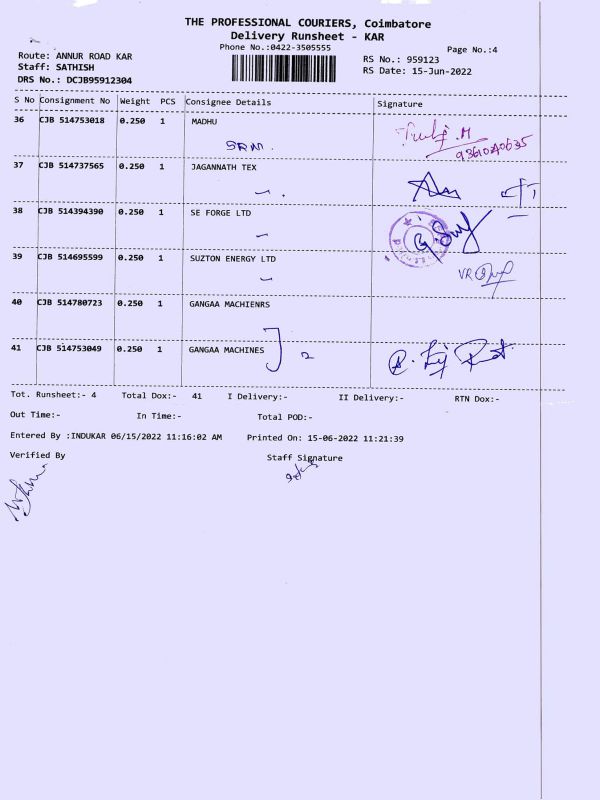 THE PROFESSIONAL COURIERS, Coimbatore
Delivery Runsheet - KAR
Phone No.:0422-3505555
Page No.:4
Route: ANNUR ROAD KAR
RS No.: 959123
Staff: SATHISH
RS Date: 15-Jun-2022
DRS No.: DCJB95912304
S No Consignment No Weight PCS Consignee Details Signature
36 CJB 514753018 0.250 1 MADHU
SRM.
37 CJB 514737565 0.250 1 JAGANNATH TEX
38 CJB 514394390 0.250 1 SE FORGE LTD
39 CJB 514695599 0.250 1 SUZTON ENERGY LTD
40 CJB 514780723 0.250 1 GANGAA MACHIENRS
41 CJB 514753049 0.250 1 GANGAA MACHINES 2
Tot. Runsheet:- 4 Total Dox:- 41 I Delivery:- II Delivery:- RTN Dox:-
Out Time:- In Time:- Total POD:-
Entered By :INDUKAR 06/15/2022 11:16:02 AM Printed On: 15-06-2022 11:21:39
Verified By Staff Signature